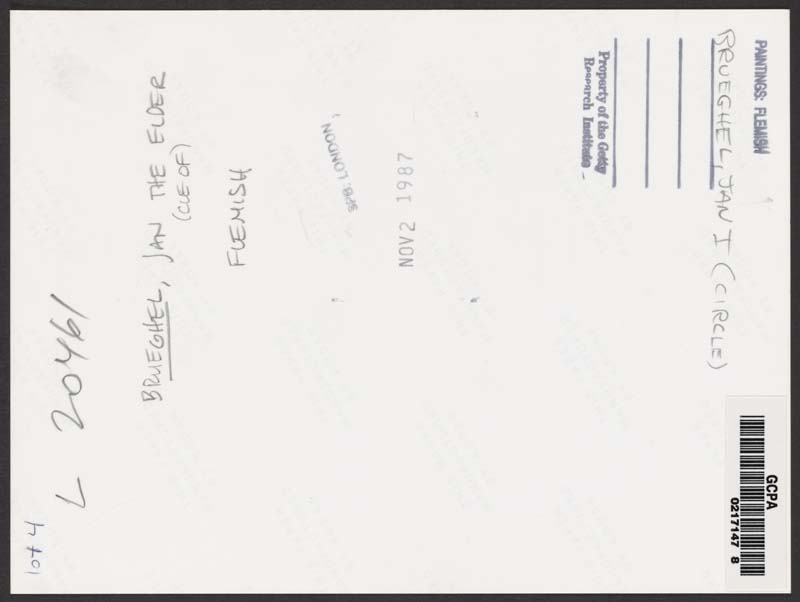 PAINTINGS: FLEMISH
BRUEGHEL, JAN I (CIRCLE)
Property of the Getty
Research Institute
NOV 2 1987
SPB: LONDON
FLEMISH
BRUEGHEL, JAN THE ELDER
(CLE OF)
L 20461
GCPA
0217147 8